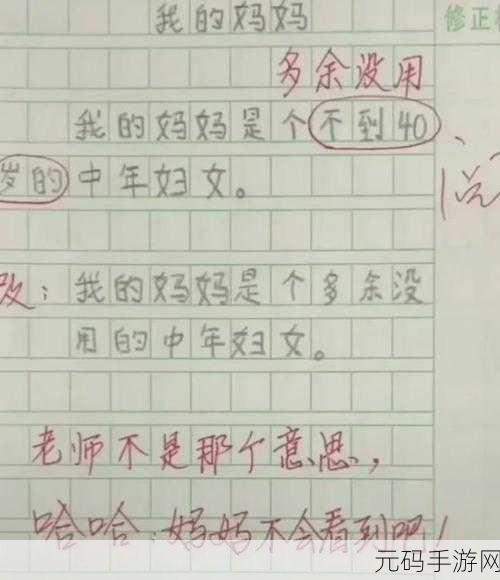 我的妈妈
修正
多余没用
我的妈妈是个不到40
岁的中年妇女。
改：我的妈妈是个多余没
用的中年妇女。
老师不是那个意思，
哈哈，妈妈不会看到吧！
元码手游网